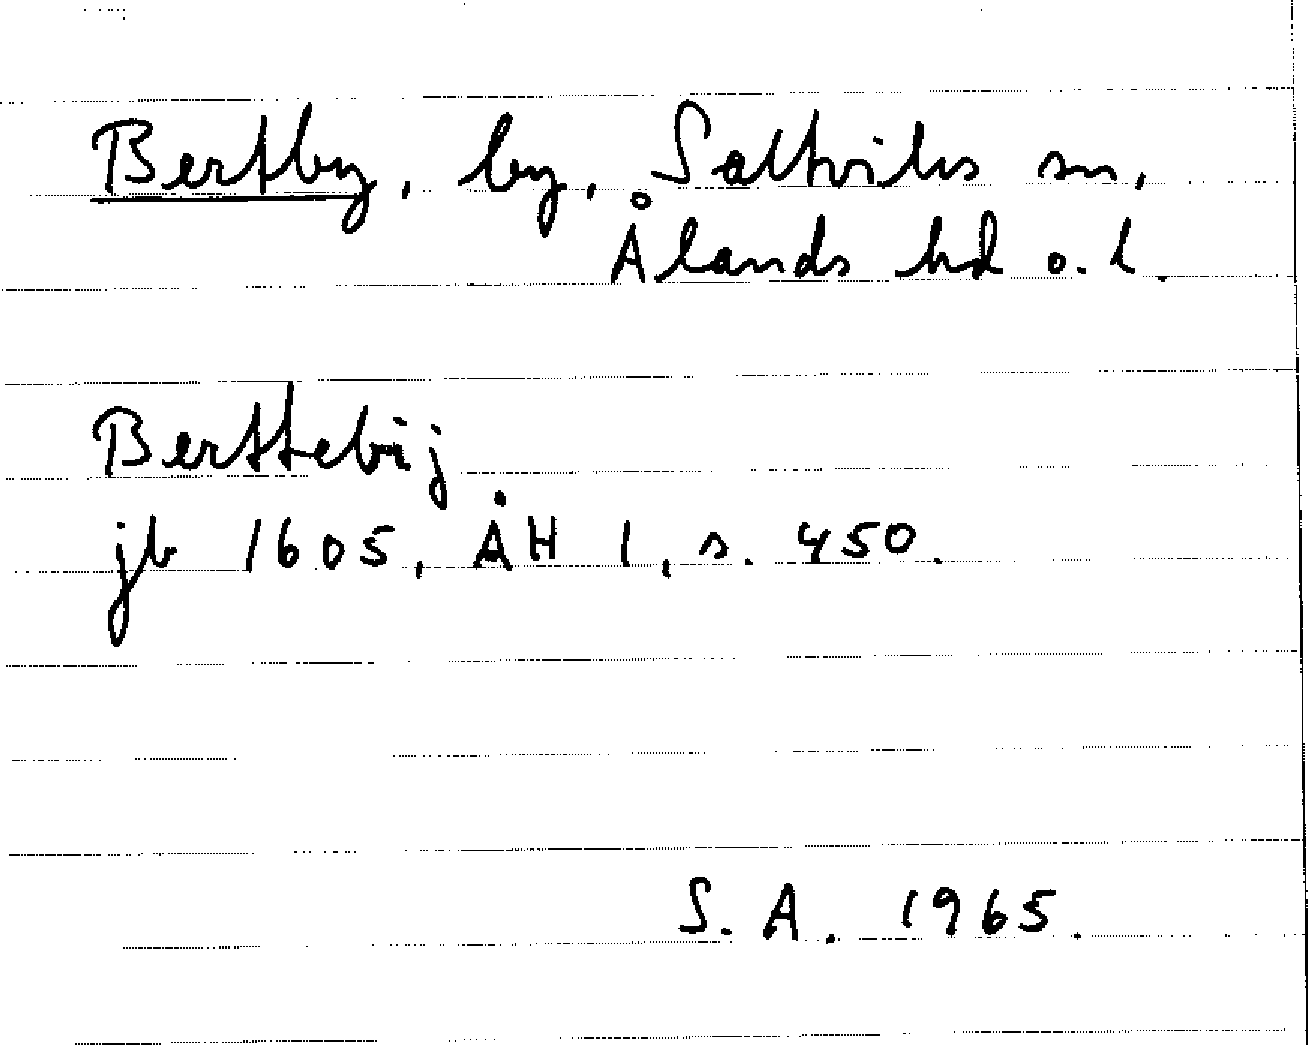 Bertby, by, Saltviks sn,
Ålands hd o. l.
Berttebÿj
jb 1605, ÅH 1, s. 450.
S. A. 1965.